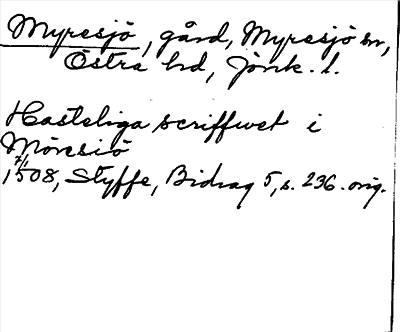 Myresjö, gård, Myresjö sn,
Östra hd, Jönk. l.
Hasteliga scriffwet i
Möresiö
7/1
1508, Styffe, Bidrag 5, s. 236. orig.